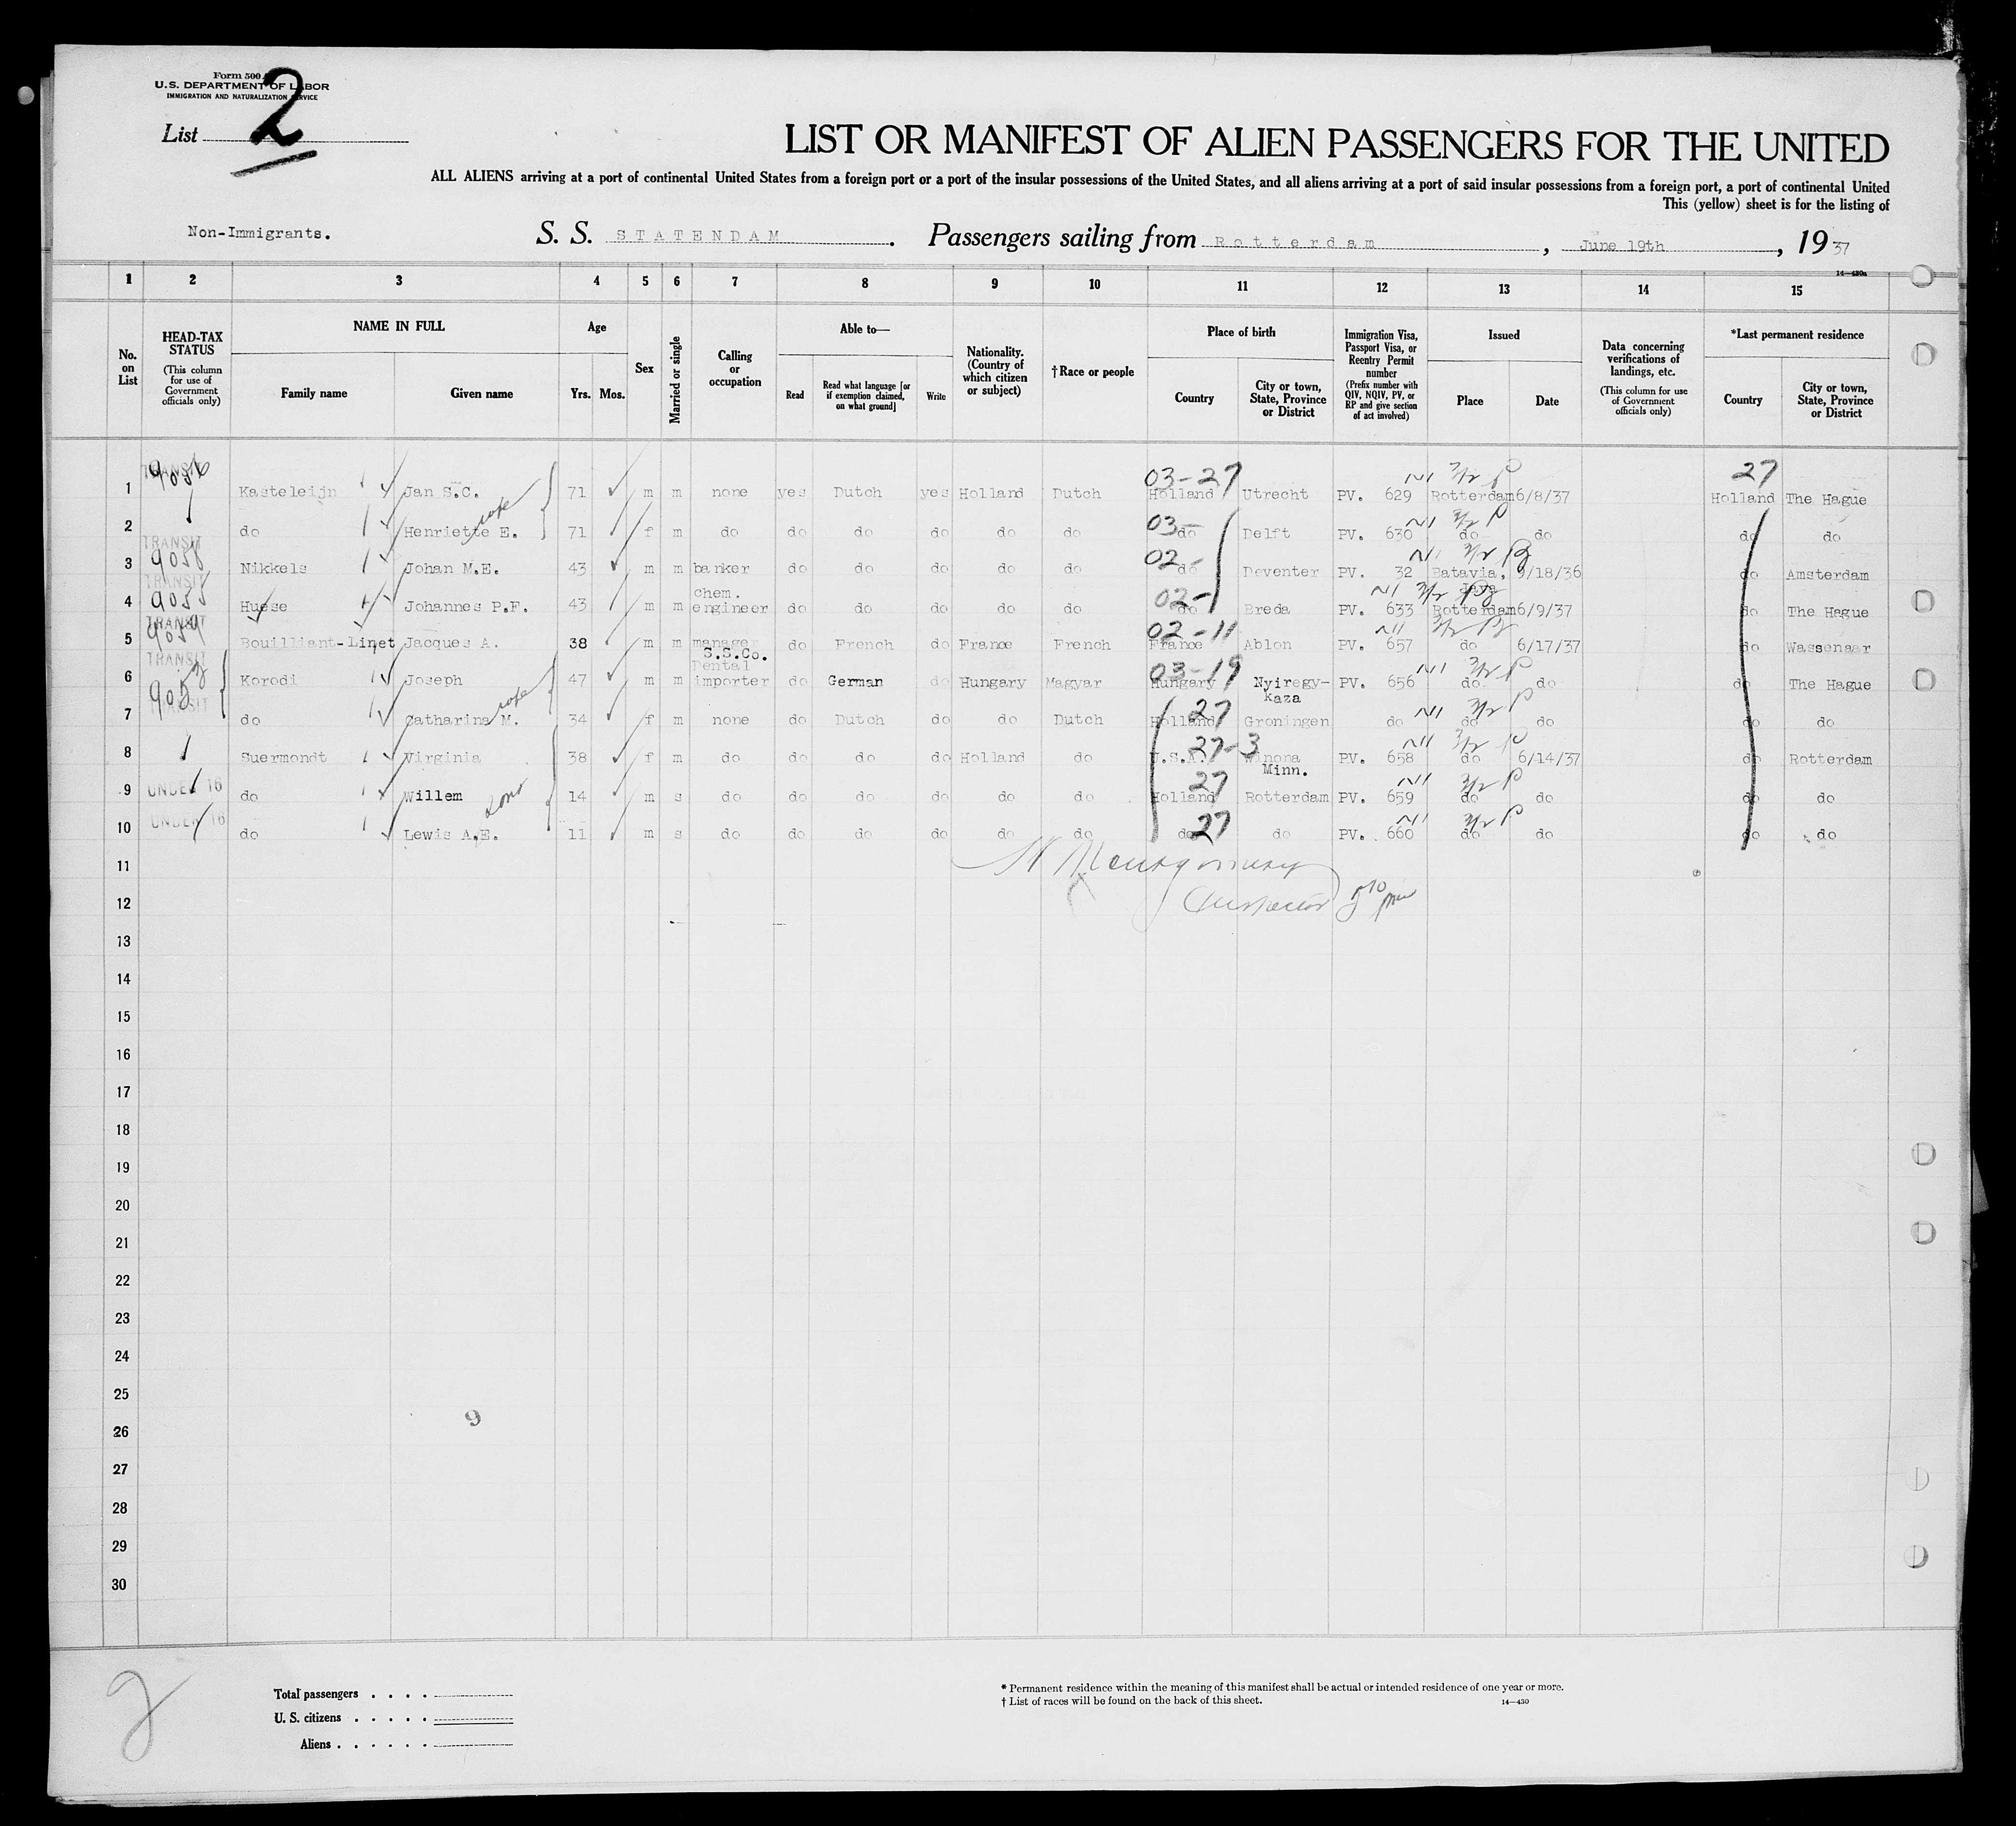 Form 500
U.S. DEPARTMENT OF LABOR
IMMIGRATION AND NATURALIZATION SERVICE
List 2
LIST OR MANIFEST OF ALIEN PASSENGERS FOR THE UNITED
ALL ALIENS arriving at a port of continental United States from a foreign port or a port of the insular possessions of the United States, and all aliens arriving at a port of said insular possessions from a foreign port, a port of continental United
This (yellow) sheet is for the listing of
Non-Immigrants. S. S. STATENDAM. Passengers sailing from Rotterdam, June 19th, 1937
14—430a
1 2 3 4 5 6 7 8 9 10 11 12 13 14 15
No. on List
HEAD-TAX STATUS (This column for use of Government officials only)
NAME IN FULL
Family name Given name
Age
Yrs. Mos.
Sex
Married or single
Calling or occupation
Able to—
Read
Read what language [or if exemption claimed, on what ground]
Write
Nationality. (Country of which citizen or subject)
†Race or people
Place of birth
Country
City or town, State, Province or District
Immigration Visa, Passport Visa, or Reentry Permit number (Prefix number with QIV, NQIV, PV, or RP and give section of act involved)
Issued
Place Date
Data concerning verifications of landings, etc. (This column for use of Government officials only)
*Last permanent residence
Country
City or town, State, Province or District
TRANSIT 9056 03-27 27
1 Kasteleijn Jan S.C. 71 m m none yes Dutch yes Holland Dutch Holland Utrecht PV. 629 Rotterdam 6/8/37 Holland The Hague
wife 03-
2 do Henriette E. 71 f m do do do do do do do Delft PV. 630 do do do do
TRANSIT 9058 02-
3 Nikkels Johan M.E. 43 m m banker do do do do do do Deventer PV. 32 Batavia, Java 9/18/36 do Amsterdam
TRANSIT 9055 02-
4 Huese Johannes P.F. 43 m m chem. engineer do do do do do do Breda PV. 633 Rotterdam 6/9/37 do The Hague
TRANSIT 9054 02-11
5 Bouilliant-Linet Jacques A. 38 m m manager S.S.Co. do French do France French France Ablon PV. 657 do 6/17/37 do Wassenaar
TRANSIT 03-19
6 Korodi Joseph 47 m m Dental importer do German do Hungary Magyar Hungary Nyiregy-kaza PV. 656 do do do The Hague
TRANSIT wife 27
7 do Catharina M. 34 f m none do Dutch do do Dutch Holland Groningen do do do do do
27-3
8 Suermondt Virginia 38 f m do do do do Holland do U.S.A. Winona Minn. PV. 658 do 6/14/37 do Rotterdam
UNDER 16 sons 27
9 do Willem 14 m s do do do do do do Holland Rotterdam PV. 659 do do do do
UNDER 16 27
10 do Lewis A.E. 11 m s do do do do do do do do PV. 660 do do do do
11
Montgomery
12
Inspector
13
14
15
16
17
18
19
20
21
22
23
24
25
9
26
27
28
29
30
2
Total passengers
U. S. citizens
Aliens
* Permanent residence within the meaning of this manifest shall be actual or intended residence of one year or more.
† List of races will be found on the back of this sheet. 14—430